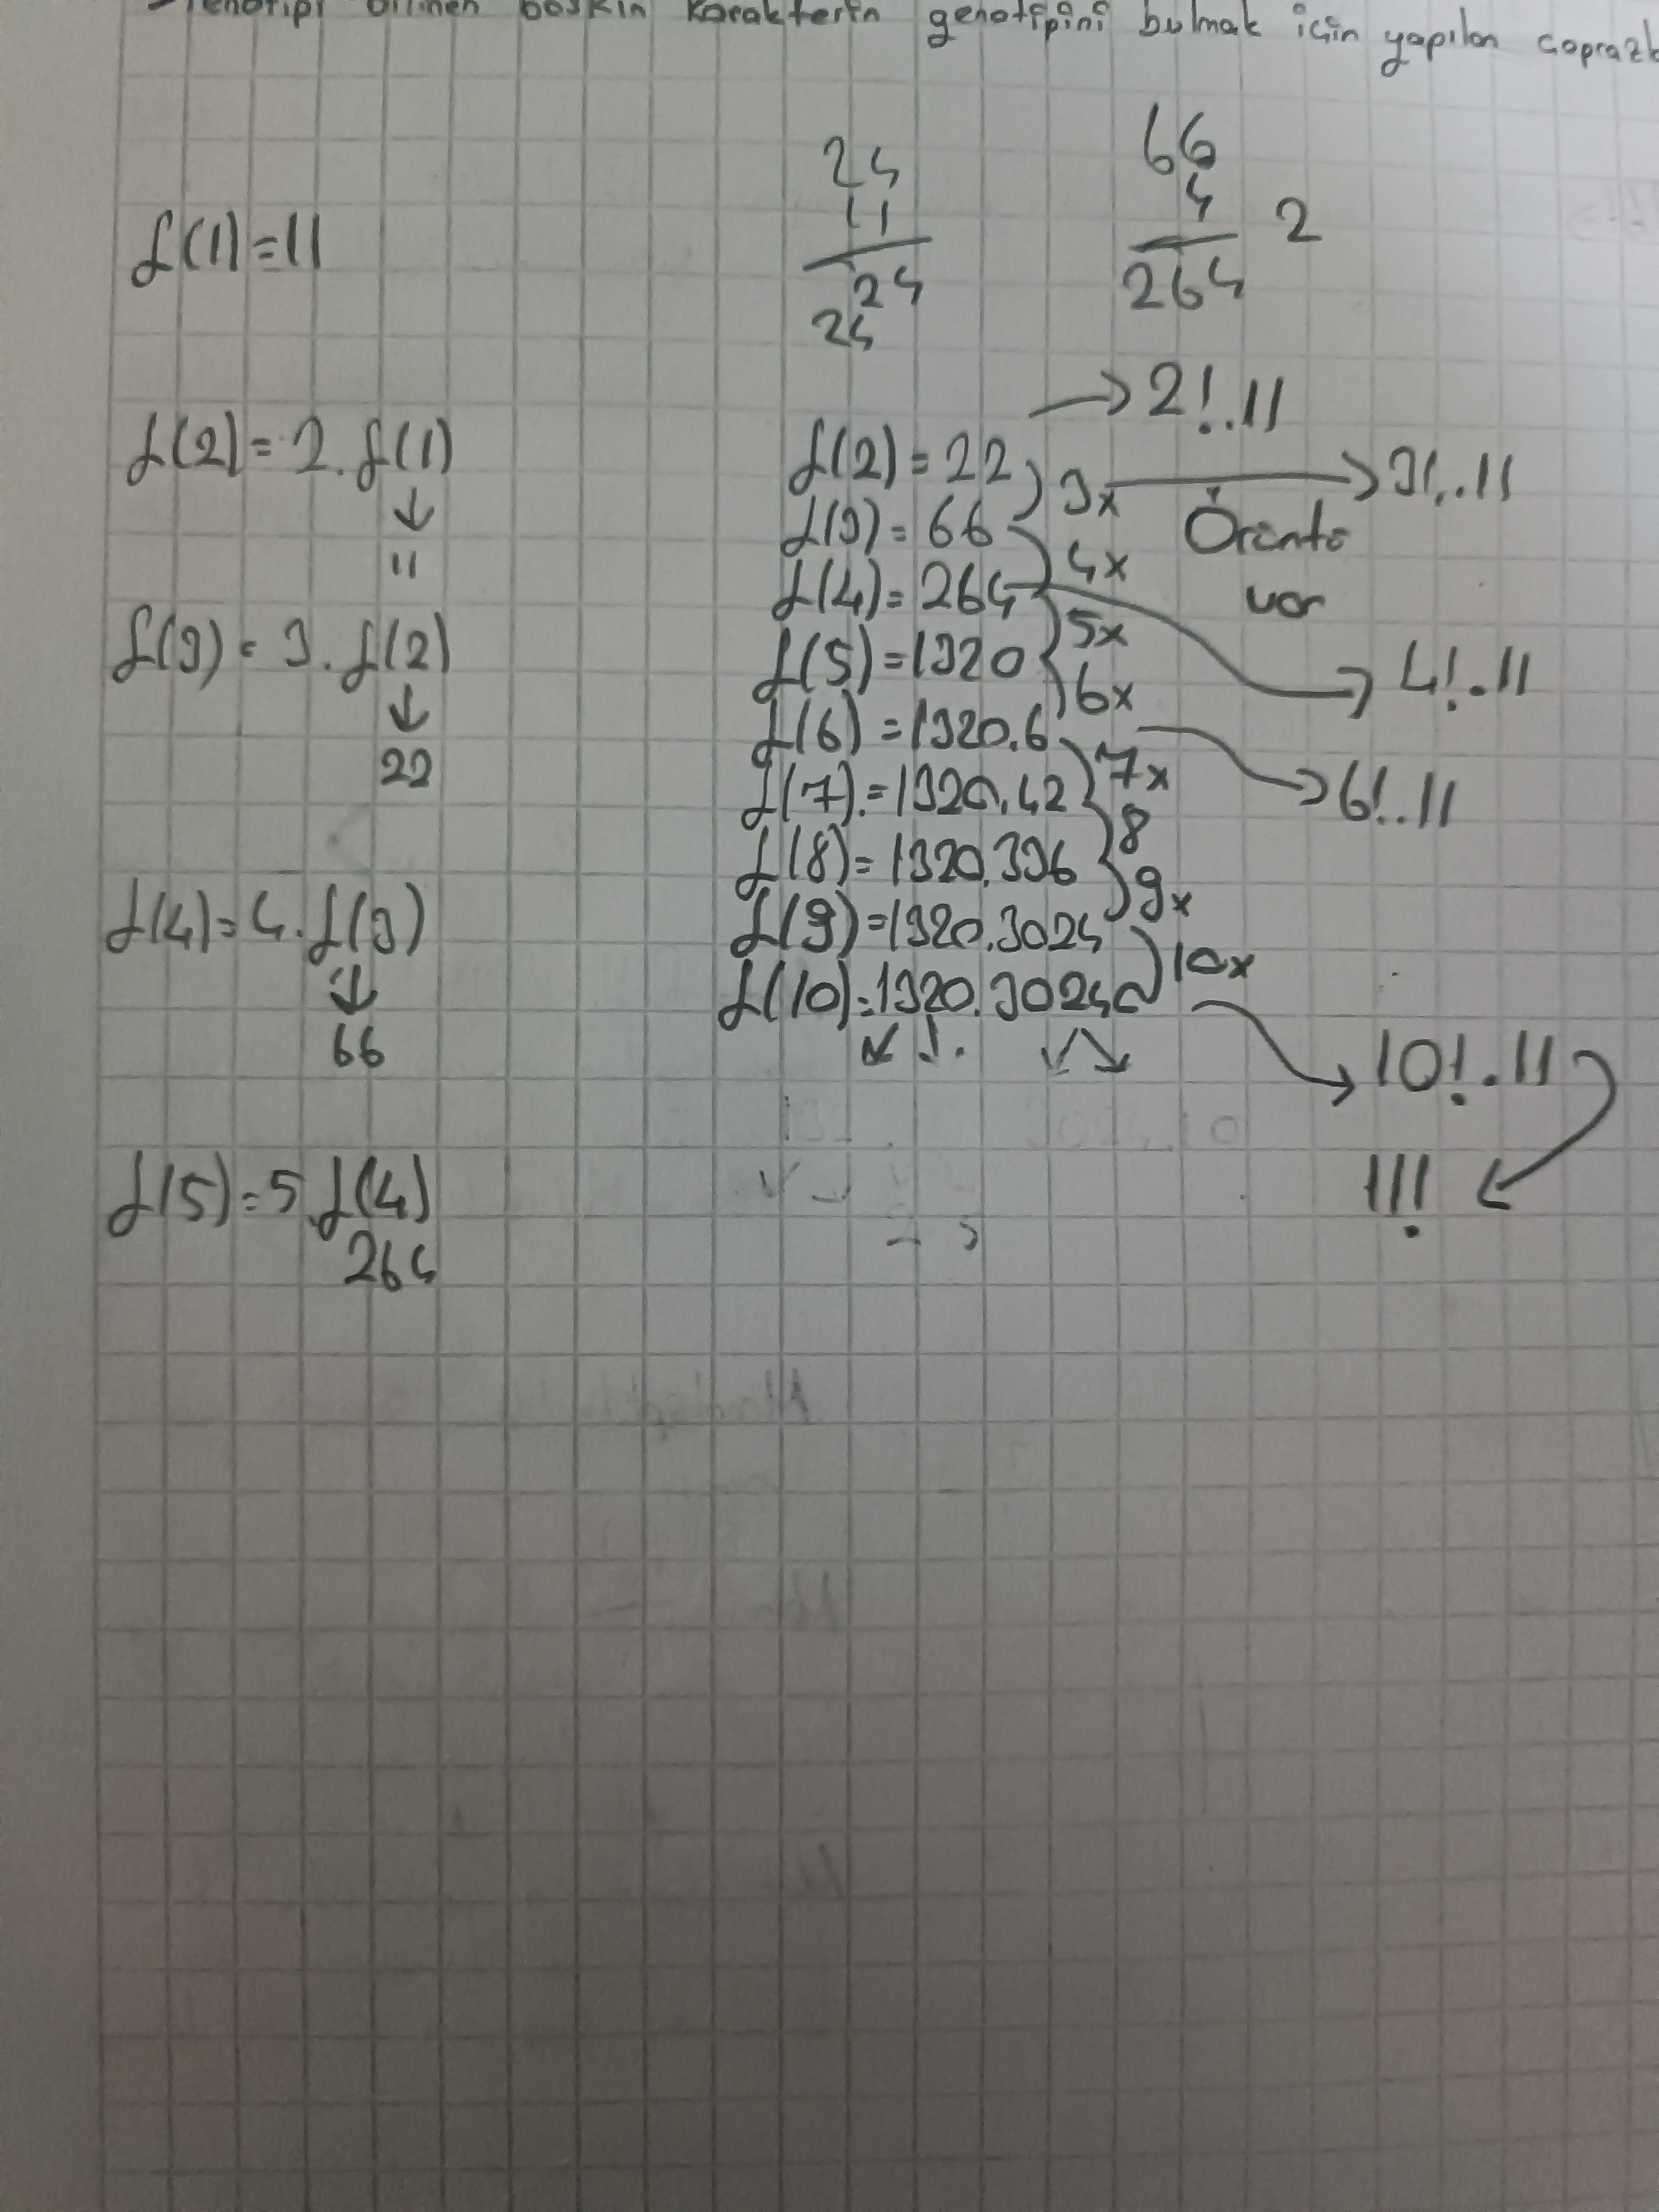 fenotipi bilinen baskın karakterin genotipini bulmak için yapılan çaprazl
24
11
24
24
66
4
264
2
f(1)=11
f(2)=2.f(1)
↓
11
f(3)=3.f(2)
↓
22
f(4)=4.f(3)
↓
66
f(5)=5.f(4)
264
→2!.11
f(2)=22
3x →3!.11
f(3)=66
Örüntü
var
4x
f(4)=264
→4!.11
5x
f(5)=1320
6x
f(6)=1320.6
→6!.11
7x
f(7)=1320.42
8
f(8)=1320.336
9x
f(9)=1320.3024
10x
f(10)=1320.30240
→10!.11
11!